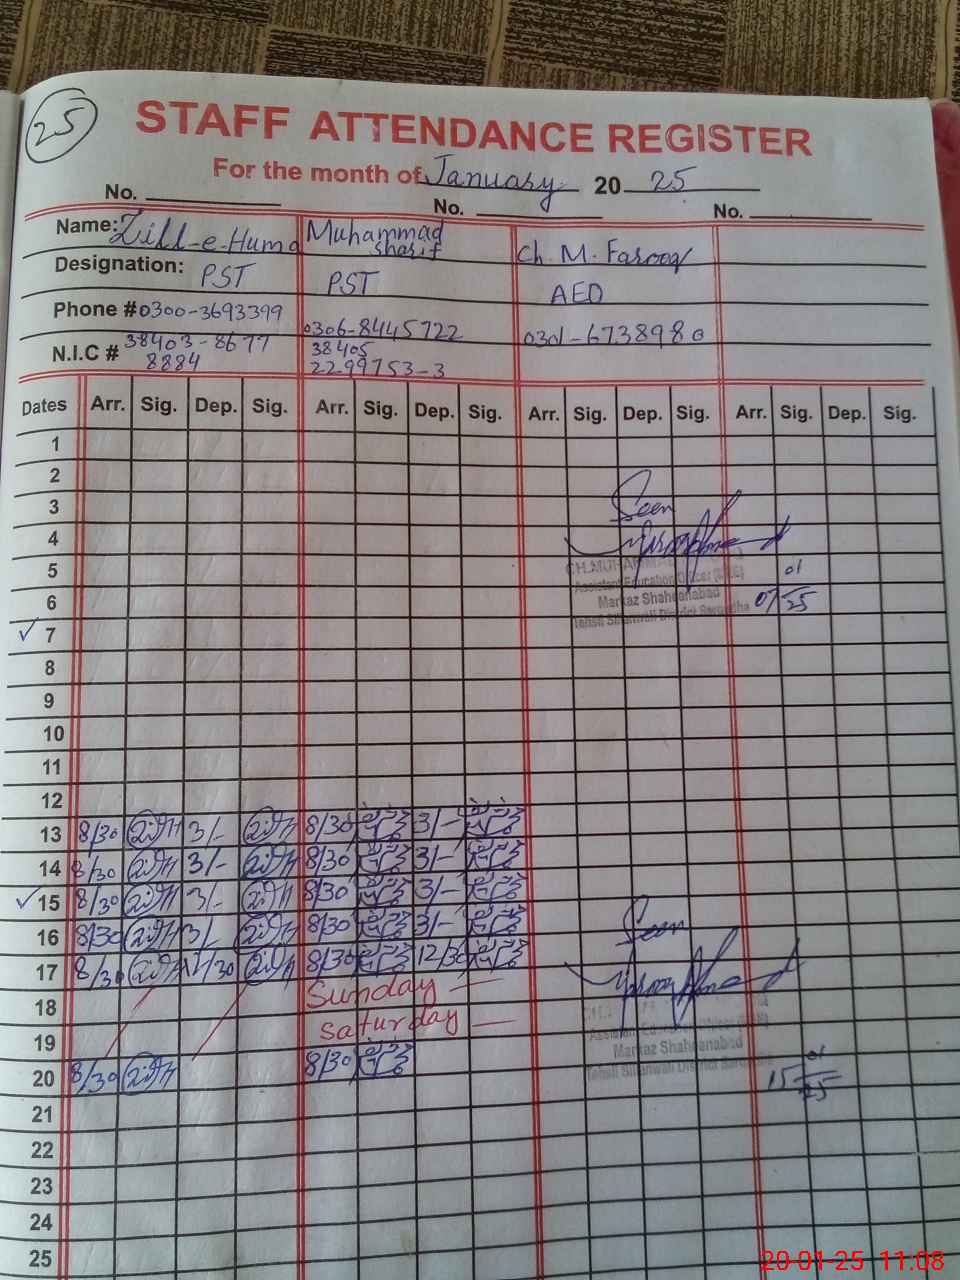 25
STAFF ATTENDANCE REGISTER
For the month of January 20 25
No. No. No.
Name: Zill-e-Huma Muhammad Sharif Ch. M. Farooq
Designation: PST PST AEO
Phone # 0300-3693399 0306-8445722 0301-6738980
N.I.C # 38403-8677 8884 38405 2299753-3
Dates Arr. Sig. Dep. Sig. Arr. Sig. Dep. Sig. Arr. Sig. Dep. Sig. Arr. Sig. Dep. Sig.
1
2
3 Seen
4
5 CH.MUHAMMAD 01
Assistant Education Officer
6 Markaz Shaheenabad 07/25
Tehsil Sillanwali District Sargodha
7
8
9
10
11
12
13 8/30 3/- 8/30 3/-
14 8/30 3/- 8/30 3/-
15 8/30 3/- 8/30 3/-
16 8/30 3/- 8/30 3/- Seen
17 8/30 12/30 8/30 12/30
18 Sunday
19 Saturday
Markaz Shaheenabad
20 8/30 8/30 Tehsil Sillanwali District Sargodha 15 01 25
21
22
23
24
25
20-01-25 11:08